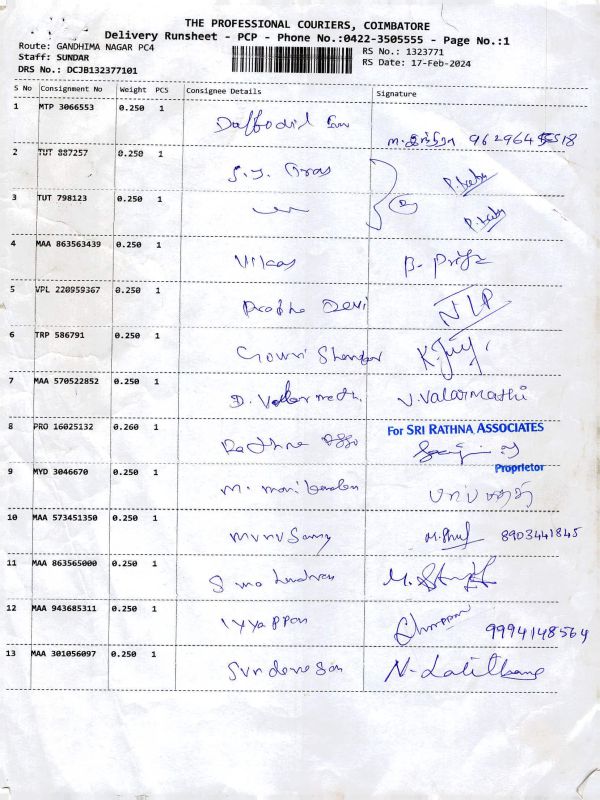 THE PROFESSIONAL COURIERS, COIMBATORE
Delivery Runsheet - PCP - Phone No.:0422-3505555 - Page No.:1
Route: GANDHIMA NAGAR PC4 RS No.: 1323771
Staff: SUNDAR RS Date: 17-Feb-2024
DRS No.: DCJB132377101
S No Consignment No Weight PCS Consignee Details Signature
1 MTP 3066553 0.250 1 Daffodil
2 TUT 887257 0.250 1
3 TUT 798123 0.250 1
4 MAA 863563439 0.250 1 Vikas B. Priya
5 VPL 220959367 0.250 1 Prabha Devi
6 TRP 586791 0.250 1 Gowri Shankar
7 MAA 570522852 0.250 1 D. Valarmathi V. Valarmathi
8 PRO 16025132 0.260 1 Rathna Asso For SRI RATHNA ASSOCIATES
Proprietor
9 MYD 3046670 0.250 1 M. Manikandan
10 MAA 573451350 0.250 1 Muru Samy 8903441845
11 MAA 863565000 0.250 1
12 MAA 943685311 0.250 1 Iyyappan 9994148564
13 MAA 301056097 0.250 1 Sundaresan